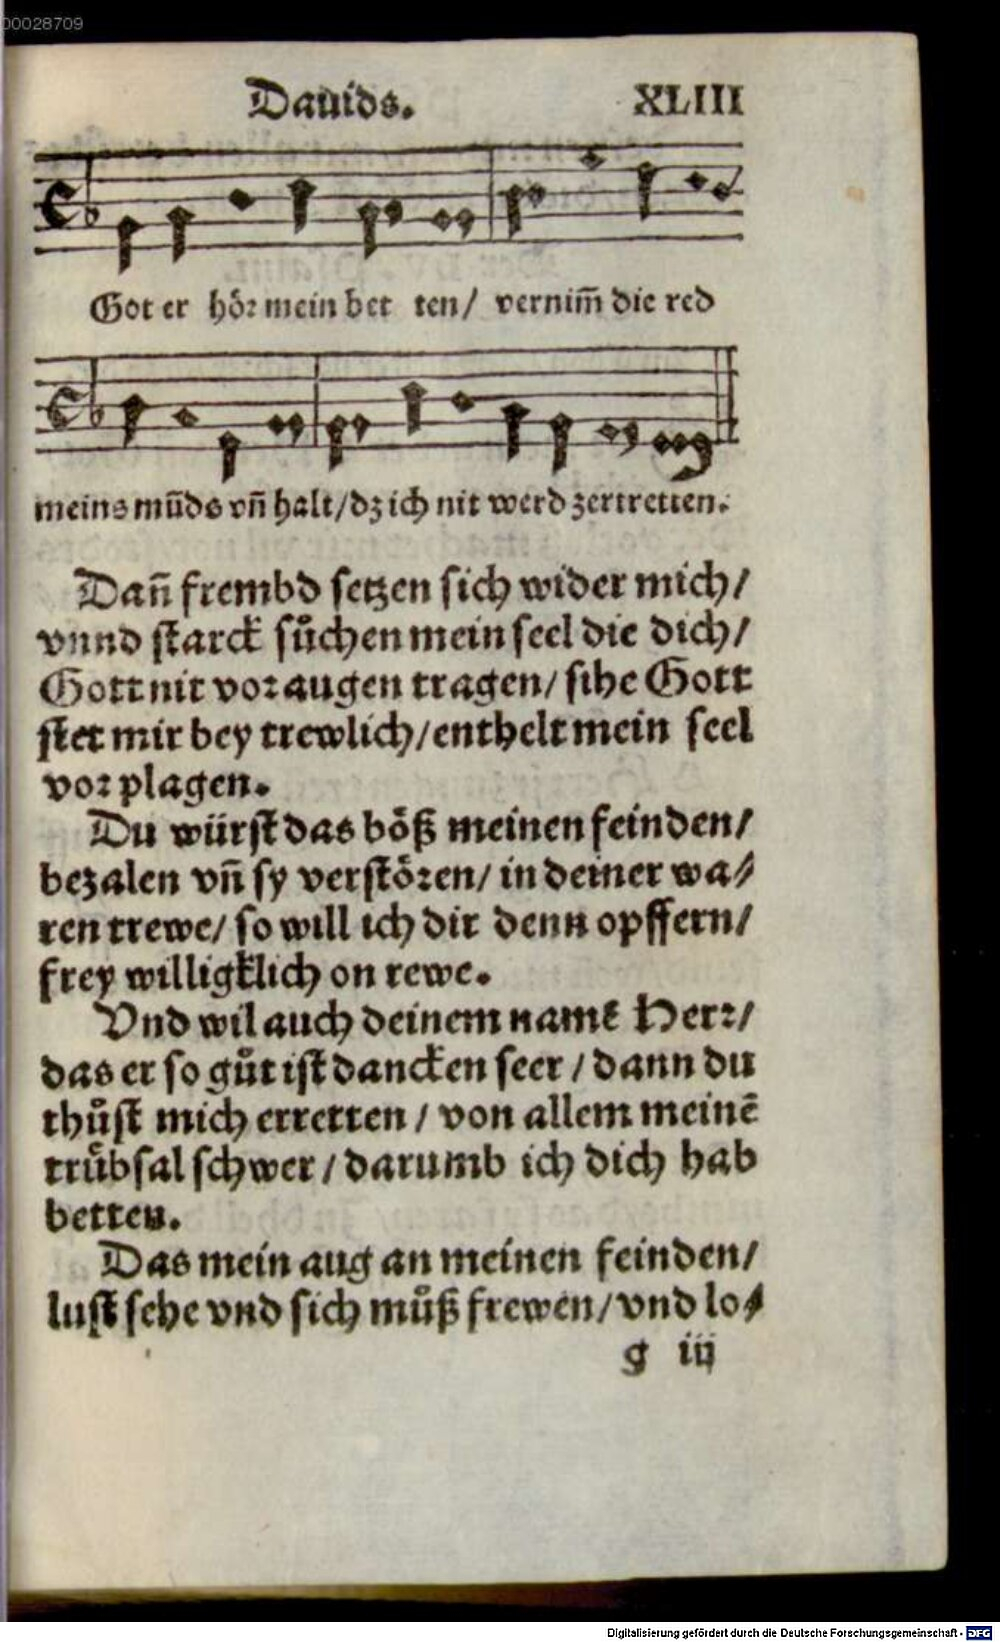 00028709
Dauids. XLIII
Got er hör mein bet ten/ vernim̄ die red
meins mūds vn̄ halt/dz ich nit werd zertretten.
Dan̄ frembd setzen sich wider mich/
vnnd starck sůchen mein seel die dich/
Gott nit vor augen tragen/ sihe Gott
stet mir bey trewlich/enthelt mein seel
vor plagen.
Du würst das böß meinen feinden/
bezalen vn̄ sy verstören/ in deiner wa⸗
ren trewe/ so will ich dir denn opffern/
frey willigklich on rewe.
Vnd wil auch deinem namē Herr/
das er so gůt ist dancken seer / dann du
thůst mich erretten / von allem meinē
trůbsal schwer / darumb ich dich hab
betten.
Das mein aug an meinen feinden/
lust sehe vnd sich můß frewen/ vnd lo⸗
g iij
Digitalisierung gefördert durch die Deutsche Forschungsgemeinschaft - DFG